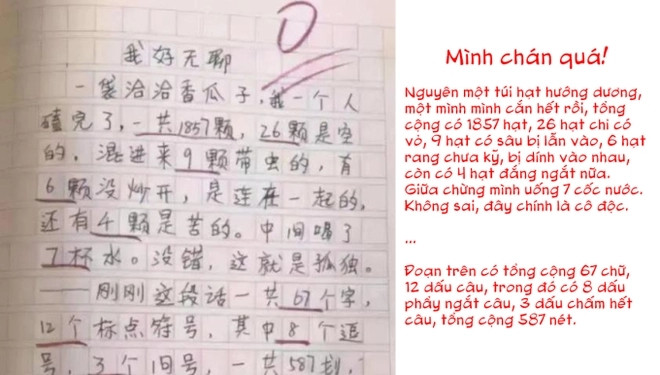 0
我好无聊
一袋洽洽香瓜子，我一个人
嗑完了，一共1857颗，26颗是空
的，混进来9颗带虫的，有
6颗没炒开，是连在一起的，
还有4颗是苦的。中间喝了
7杯水。没错，这就是孤独。
——刚刚这段话一共67个字，
12个标点符号，其中8个逗
号，3个句号，一共587划，
Mình chán quá!
Nguyên một túi hạt hướng dương,
một mình mình cắn hết rồi, tổng
cộng có 1857 hạt, 26 hạt chỉ có
vỏ, 9 hạt có sâu bị lẫn vào, 6 hạt
rang chưa kỹ, bị dính vào nhau,
còn có 4 hạt đắng ngắt nữa.
Giữa chừng mình uống 7 cốc nước.
Không sai, đây chính là cô độc.
...
Đoạn trên có tổng cộng 67 chữ,
12 dấu câu, trong đó có 8 dấu
phẩy ngắt câu, 3 dấu chấm hết
câu, tổng cộng 587 nét.